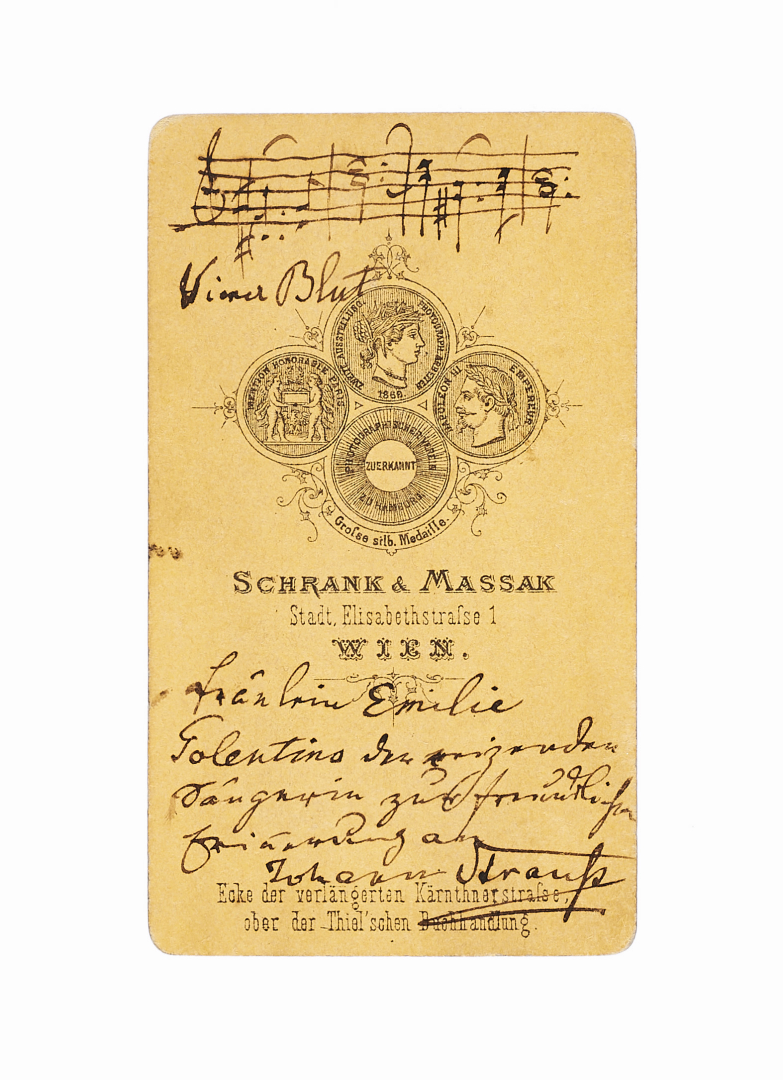 Wiener Blut
ZWEITE AUSSTELLUNG. PHOTOGRAPH
1868.
MENTION HONORABLE PARIS
NAPOLEON III EMPEREUR
PHOTOGRAPH
ZUERKANNT
ZU HAMBURG
Groſse silb. Medaille.
SCHRANK & MASSAK
Stadt, Elisabethstraſse 1
WIEN.
Fräulein Emilie
Tolentino der reizenden
Sängerin zur freundlichen
Erinnerung an
Johann Strauß
Ecke der verlängerten Kärnthnerstraſse,
ober der Thiel'schen Buchhandlung.